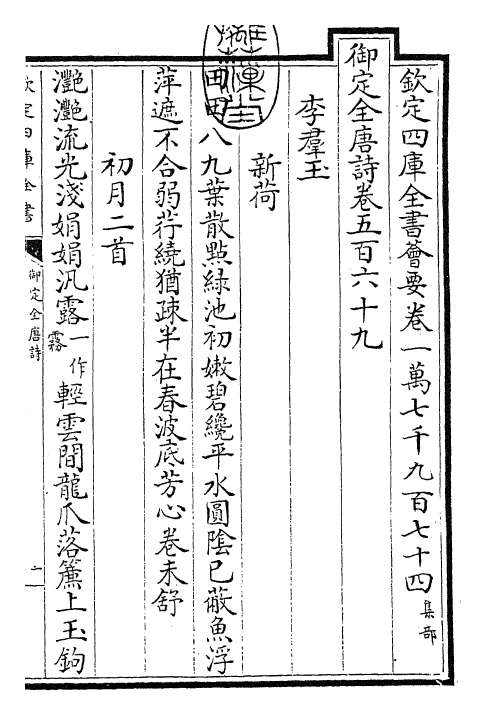 欽定四庫全書薈要卷一萬七千九百七十四 集部
御定全唐詩卷五百六十九
李羣玉
新荷
田田八九葉散點綠池初嫩碧纔平水圓陰已蔽魚浮
萍遮不合弱荇繞猶疎半在春波底芳心卷未舒
初月二首
灔灔流光淺娟娟汎露一作霧輕雲間龍爪落簾上玉鉤
欽定四庫全書
御定全唐詩